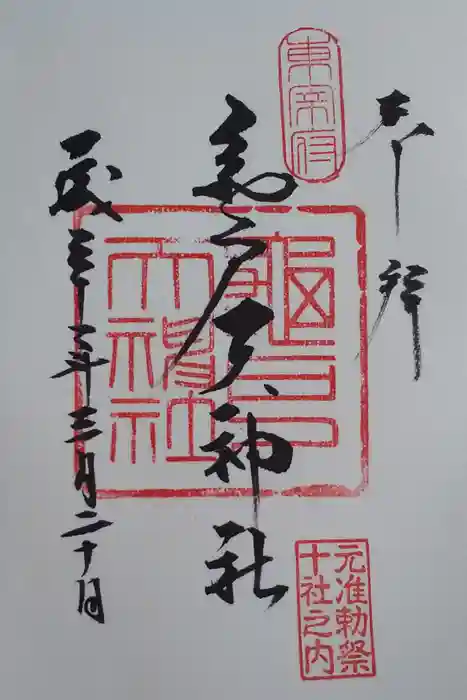 奉拝
東宰府
亀戸天神社
龜戸
天神社
平成三十一年三月二十日
元准勅祭
十社之内